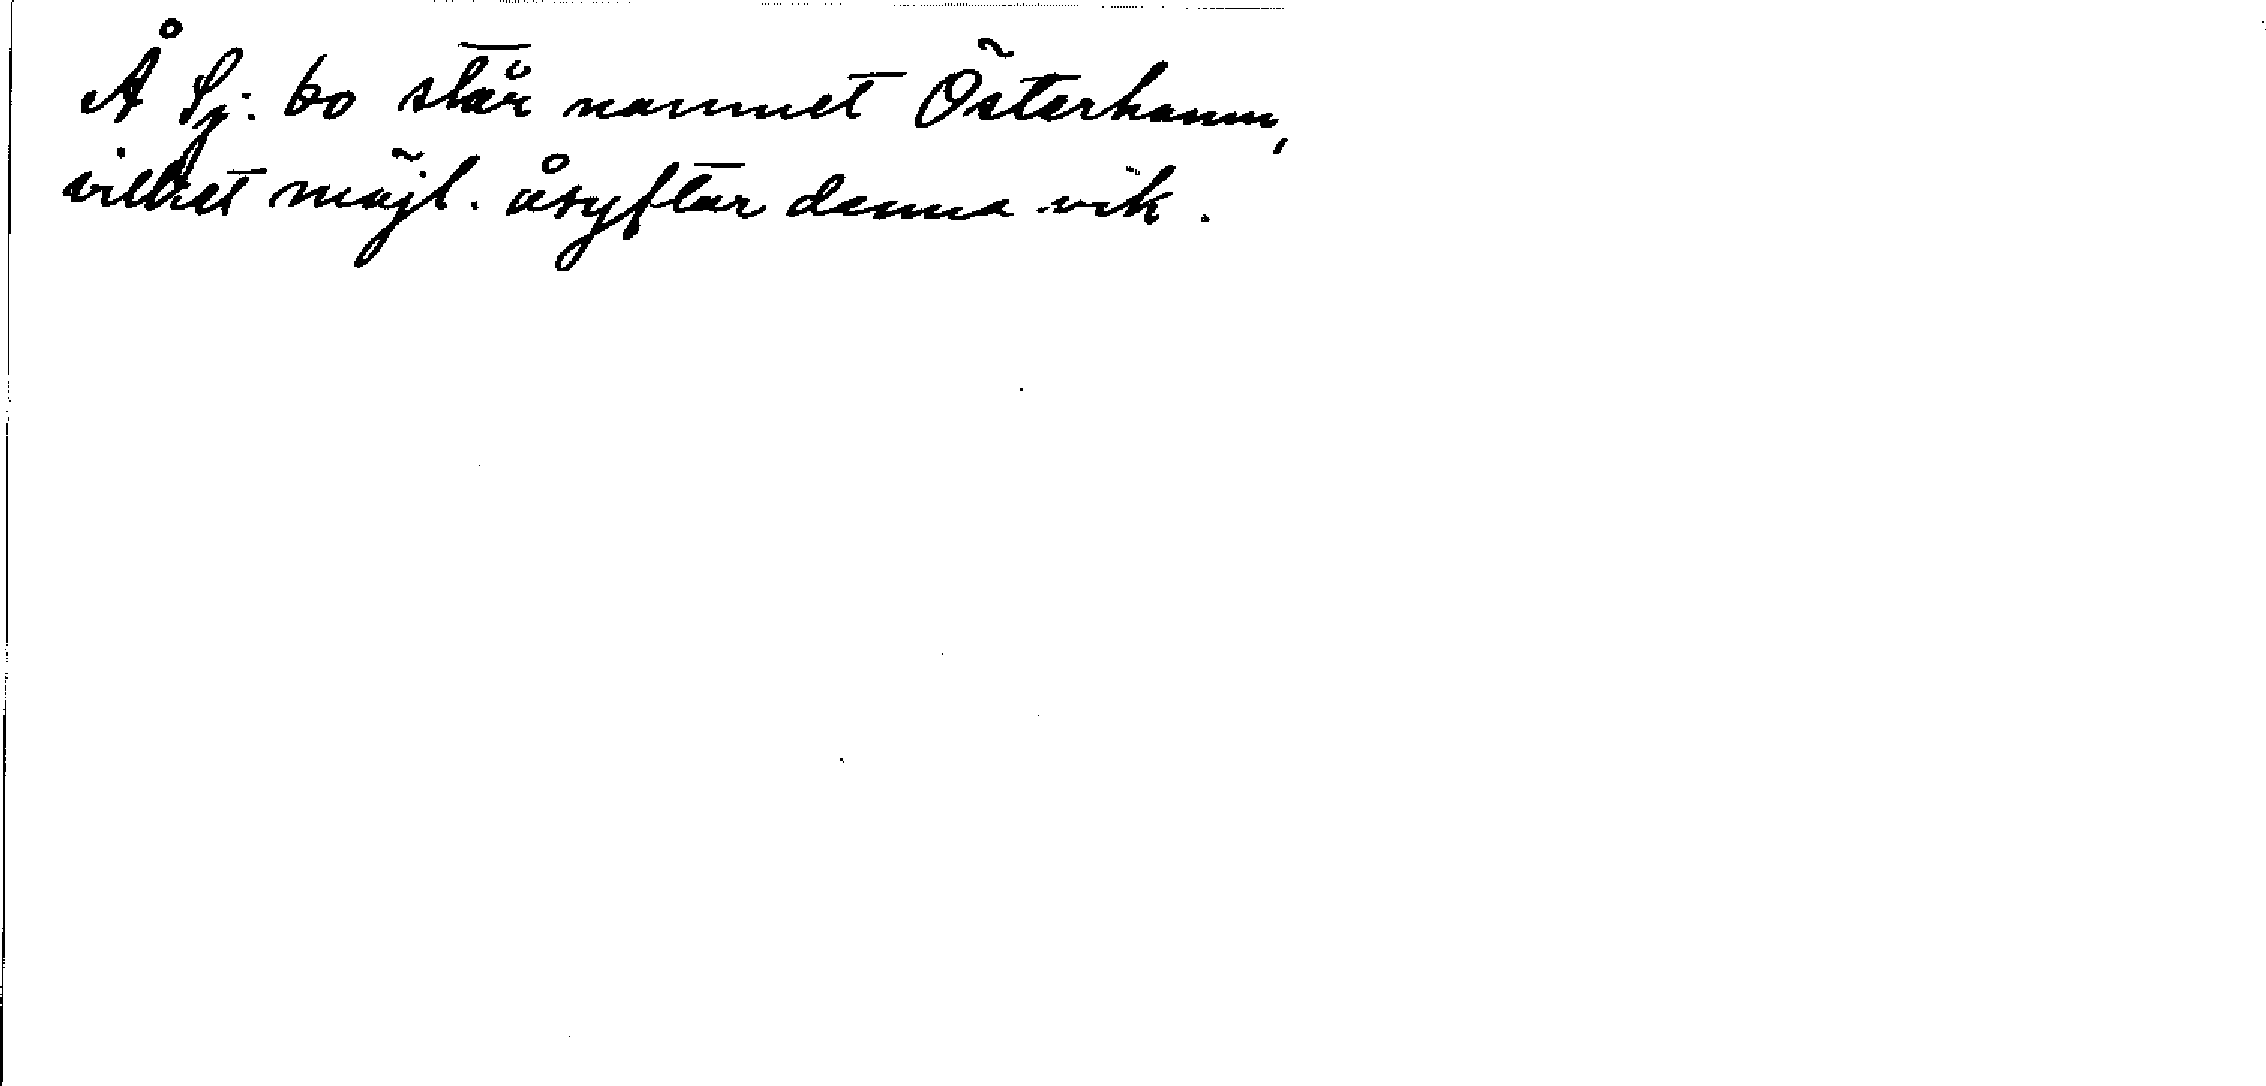 Å Sj: 60 står namnet Österhamn,
vilket möjl. åsyftar denna vik.